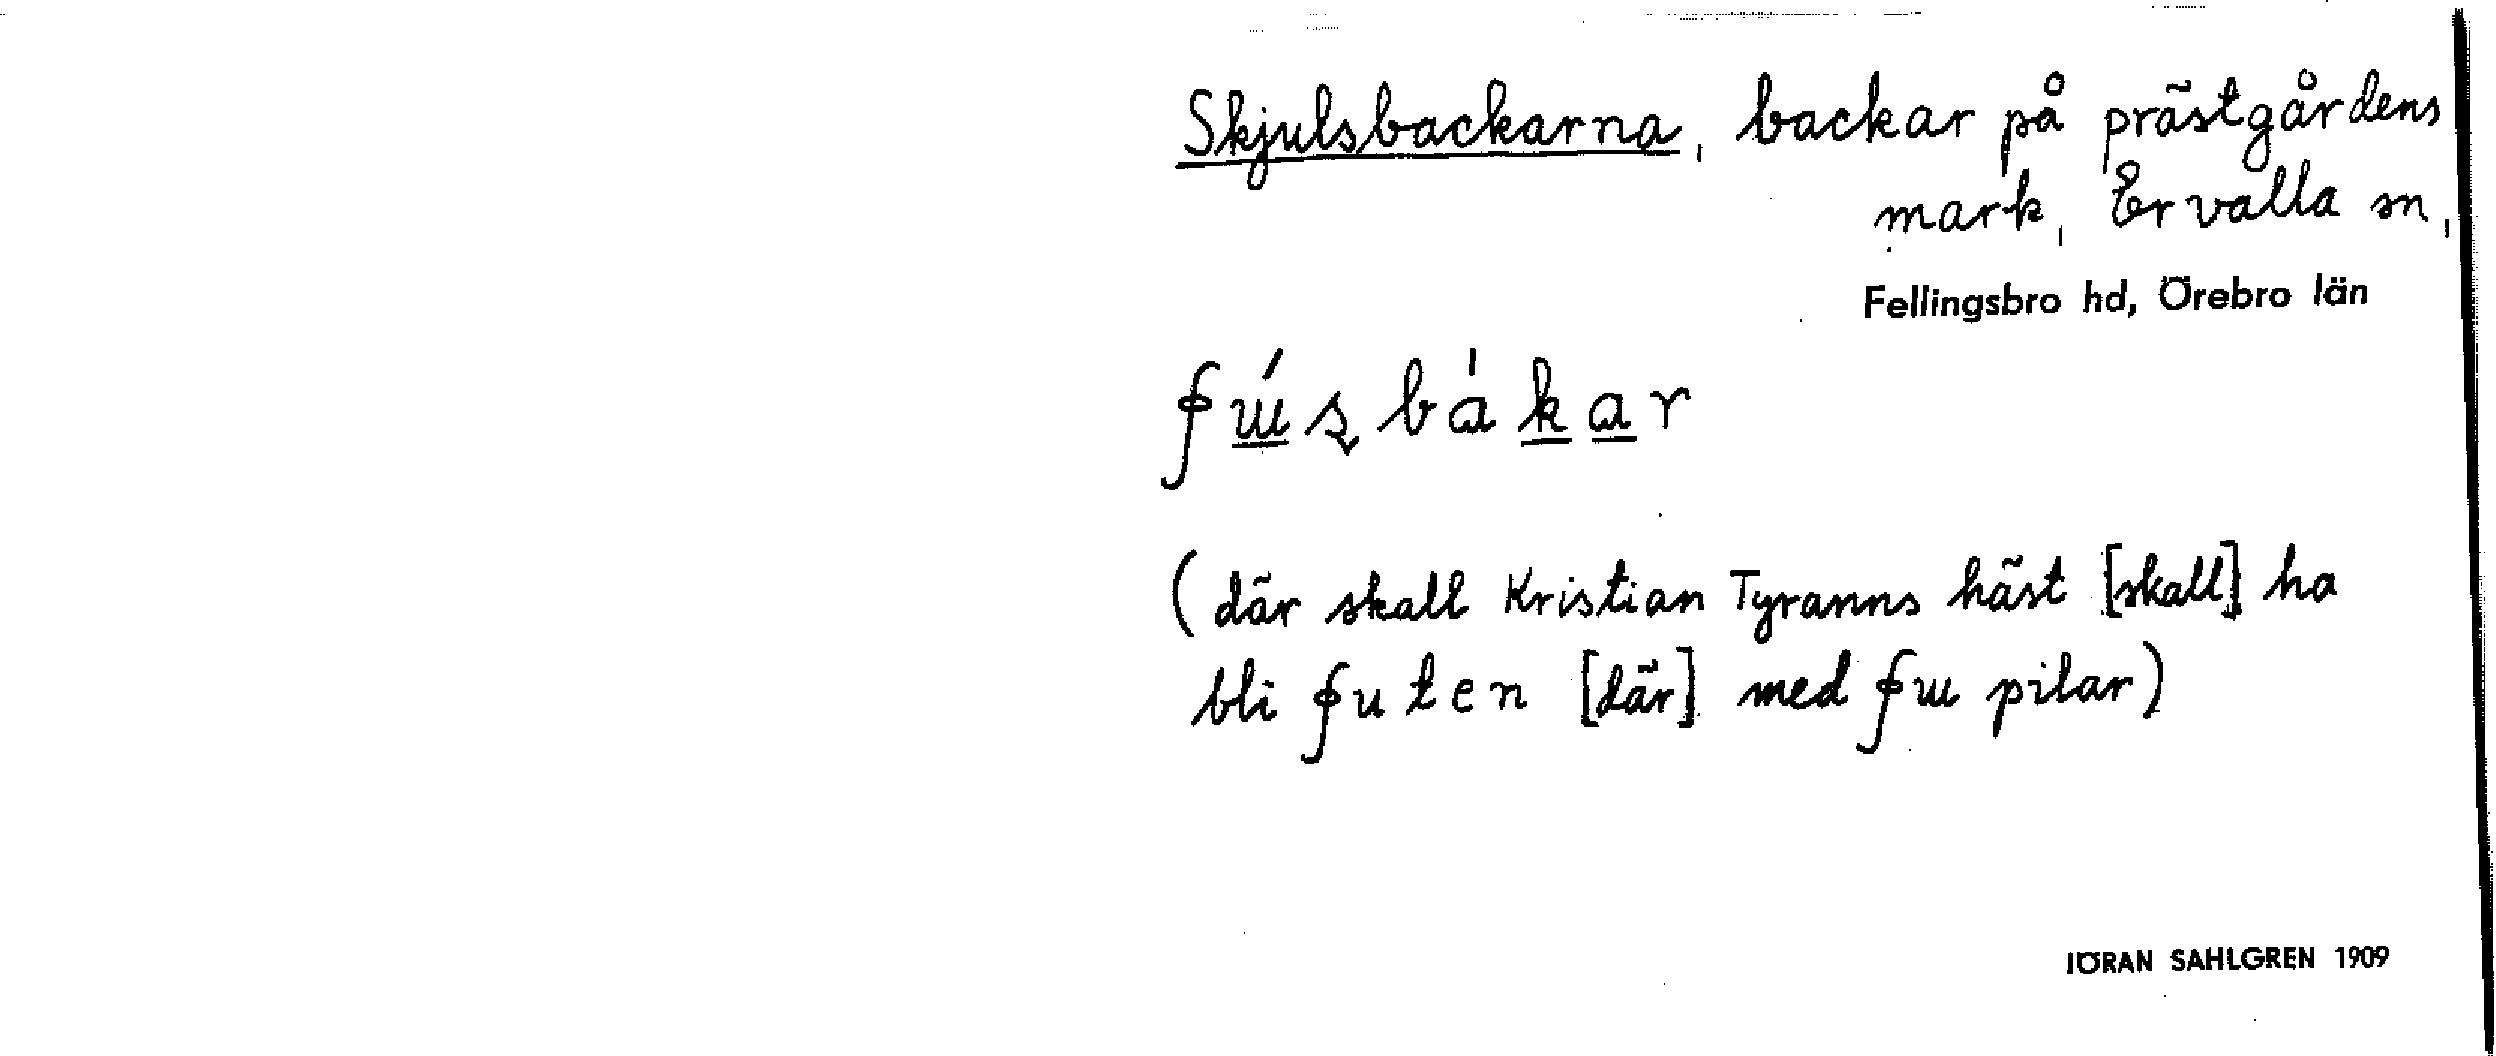 Skjulsbackarna, backar på prästgårdens
mark, Ervalla sn,
Fellingsbro hd, Örebro län
(där skall Kristian Tyranns häst [skall] ha
bli ꞙuten [där] med ꞙɯ pilar)
JÖRAN SAHLGREN 1909